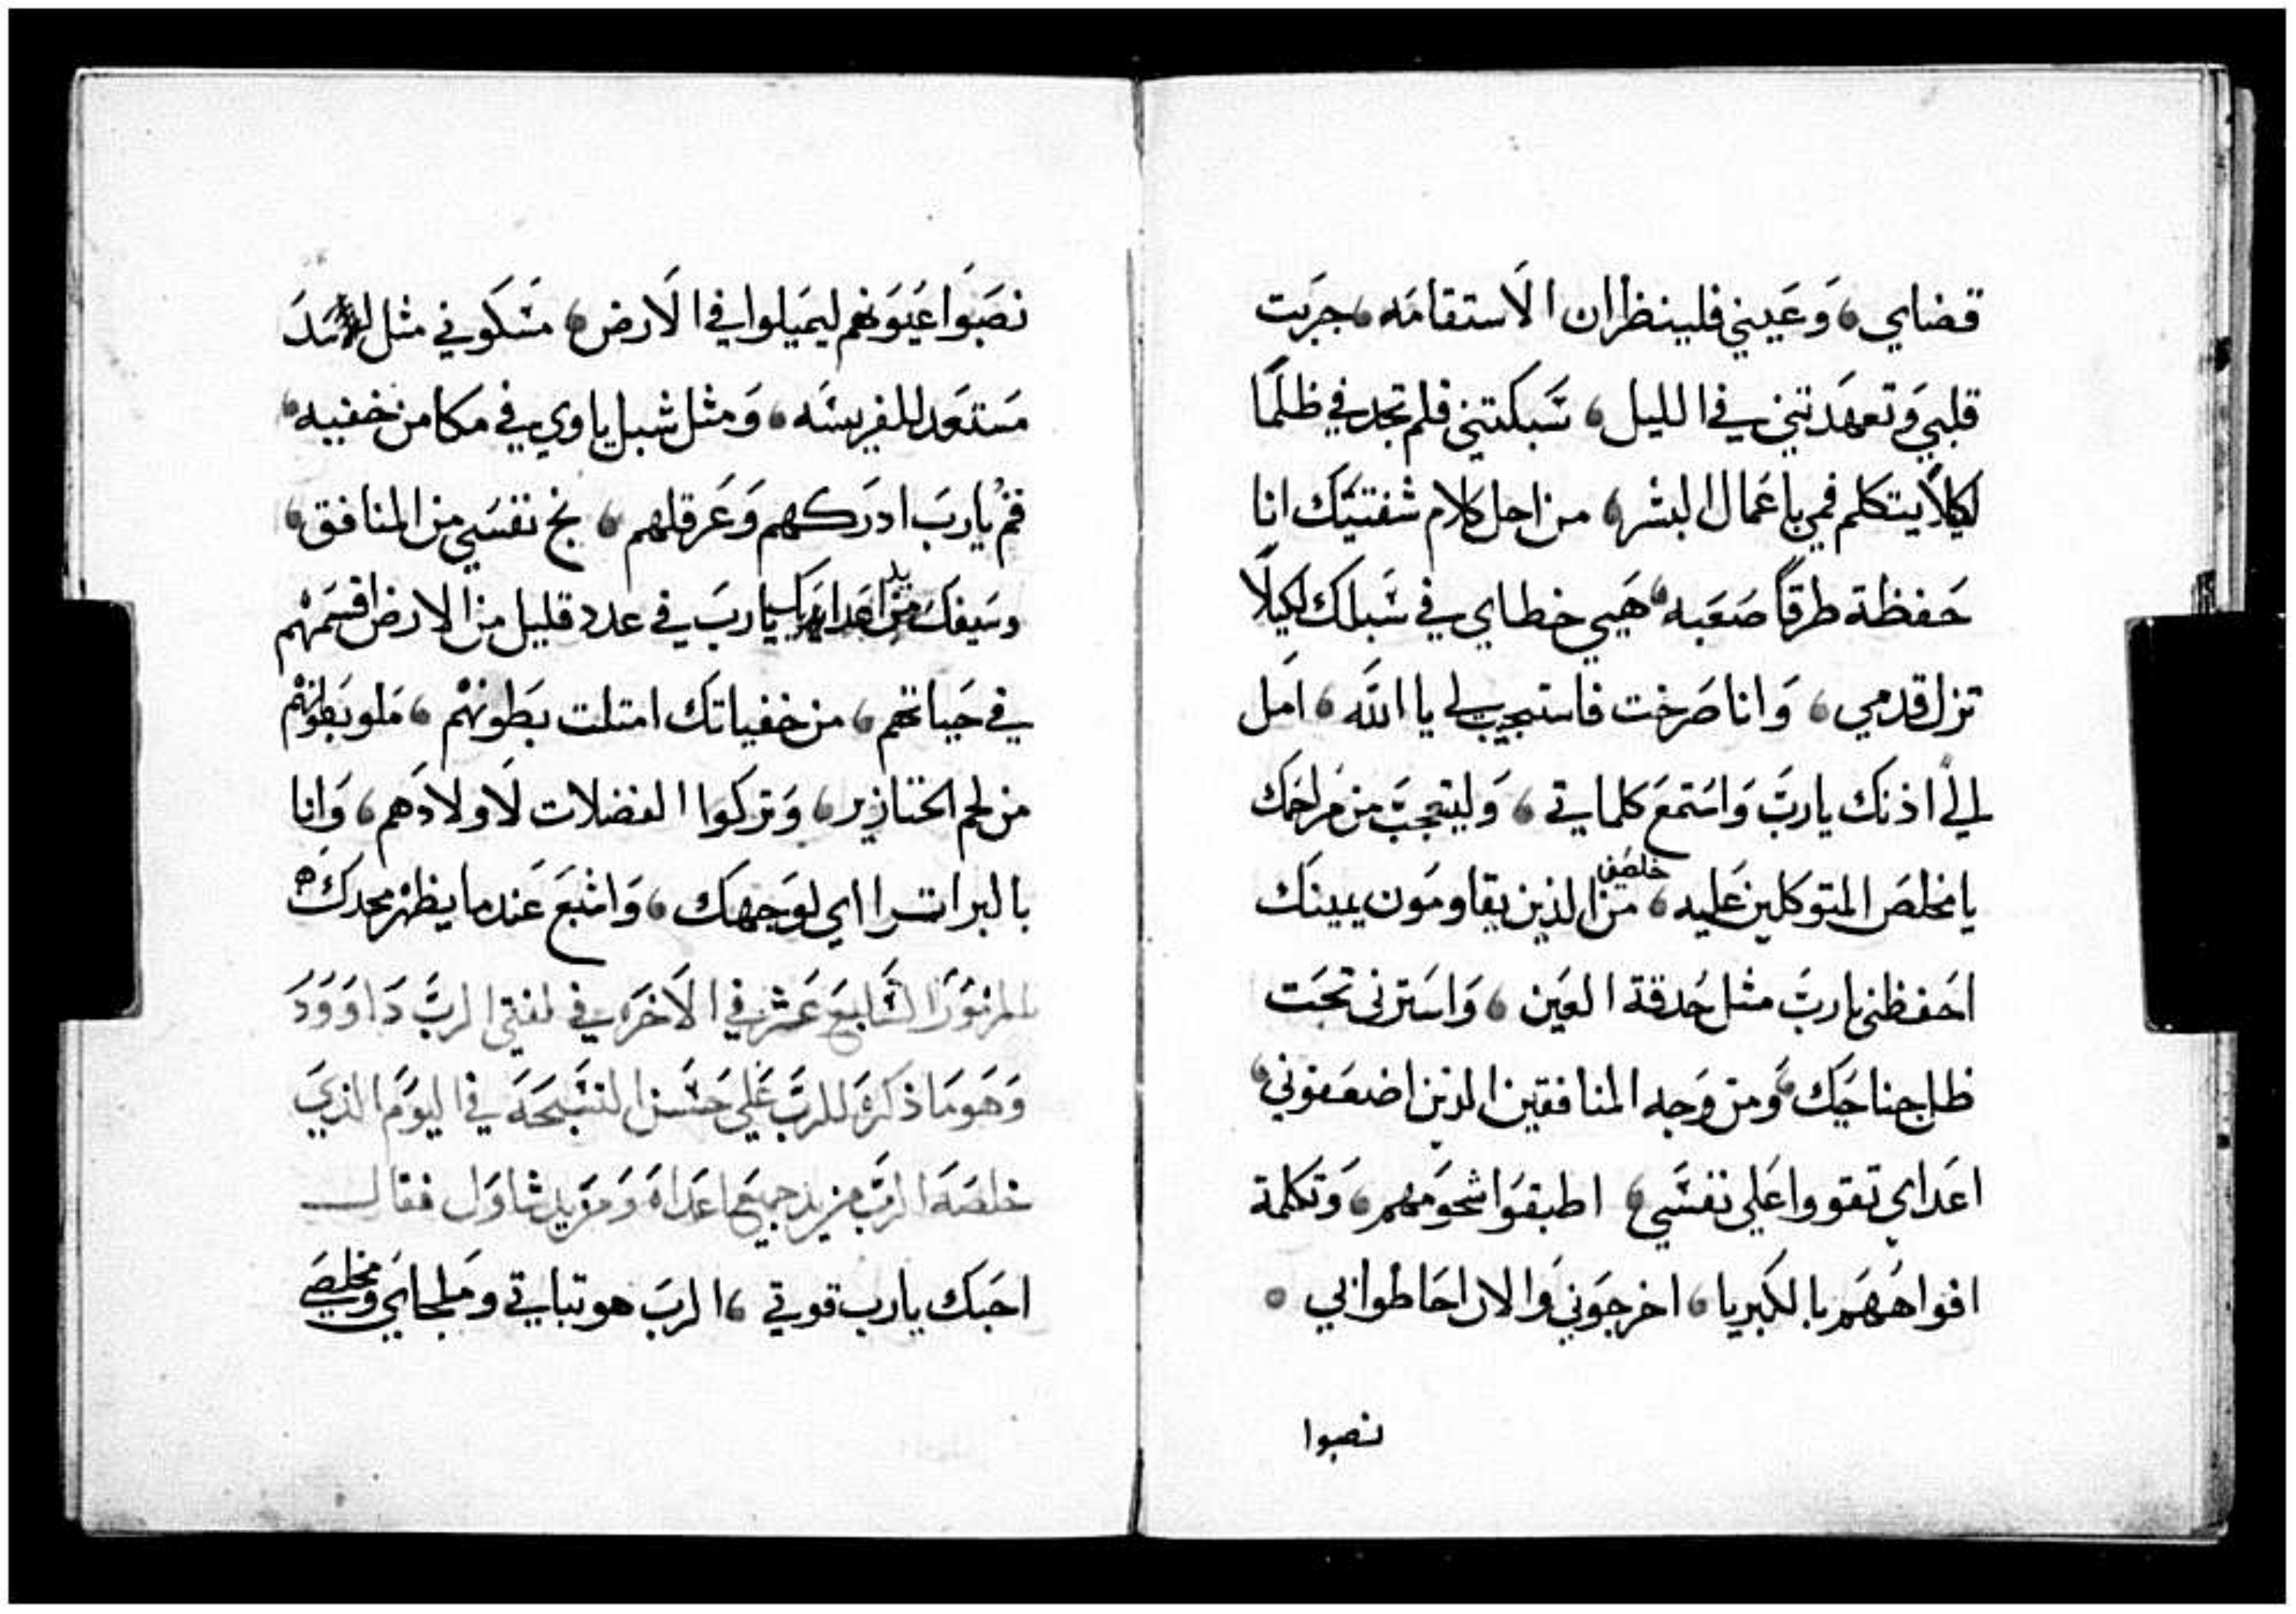 قضاي، وَعَيني فلينظران الاستقامَه، جرَبت
قلبي وَتعهَدَتني في الليل، سَبكتني فلم تجد في ظلمًا
لكيلا يتكلم فمي باعَمال البشر، من اجل كلام شفتيَك انا
حَفظة طرقًا صَعَبه، هَيي خطاي في سَبلك لكيلا
تزل قدمي، وَانا صَرخت فاستجيب لي يا الله، امَل
الي اذنَك يا ربَ وَاسَتمعَ كلماتي، وَليتعجبَ من مَراحمَك
يا مخلصَ المتوكلين عَليه، خلصني من الذين يقاومَون يمينَك
احَفظني يا ربَ مثل حَدقة العَين، وَاسَترني تحَت
ظل جناحَيَك، وَمن وَجه المنافقين الذين اضعَفوني،
اعَداي تقووا عَلي نفسَي، اطبقوَا شحوَمهم، وَتكلمة
افواههَم بالكبريا، اخرجوَني وَالان احَاطوا بي ٥
نصبوا
نصَبَوا عَيوَنهم ليمَيلوا في الارض، مسَكوَني مثل الاسَدَ
مَستعَد للفريسَه، وَمثل شبل ياوي في مكامن خفيه،
قم يا ربَ ادرَكهم وَعَرقلهم، نج نفسَي من المنافق،
وسَيفكَ من يد اعَداي يا ربَ في عدد قليل من الارض اقسَمَهم
في حَياتهم، من خفياتك امتلت بطَونهَم، مَلو بَطونهَم
من لحم الخنازير، وَترَكوا الفضلات لاولادَهم، وَانا
بالبر اترااي لوَجهَك، وَاشبَعَ عَندما يظهر مجدكَ ٥
المزمَوَر السَابعَ عَشر في الاخرَه في لفتي الربَ دَاوَوَدَ
وَهوَ مَا ذكرَه للربَ عَلي حَسَن التسَبحَه في اليوَم الذي
خلصَه الربَ من يد جميعَ اعَداه وَمَن يد شاوَل فقال
احَبَك يا رب قوتي، الربَ هو ثباتي ومَلجاي ومخلصَي